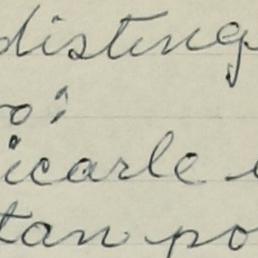 disting
o:
icarle
tan po